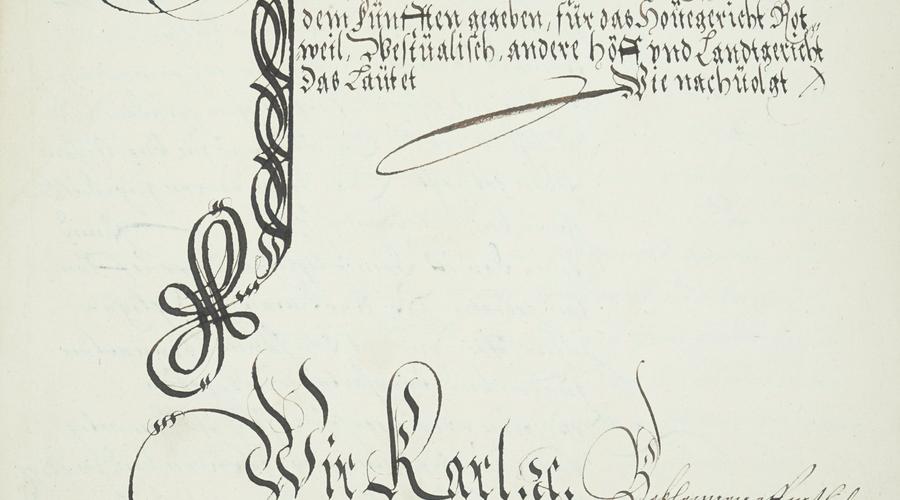 dem Fünfften gegeben, für das Hoüegericht Rot„
weil, Westüalisch, andere höff vnd Landtgericht
das Laütet Wie nachüolgt
Wir Karl. ꝛc. Bekhennen offentlich